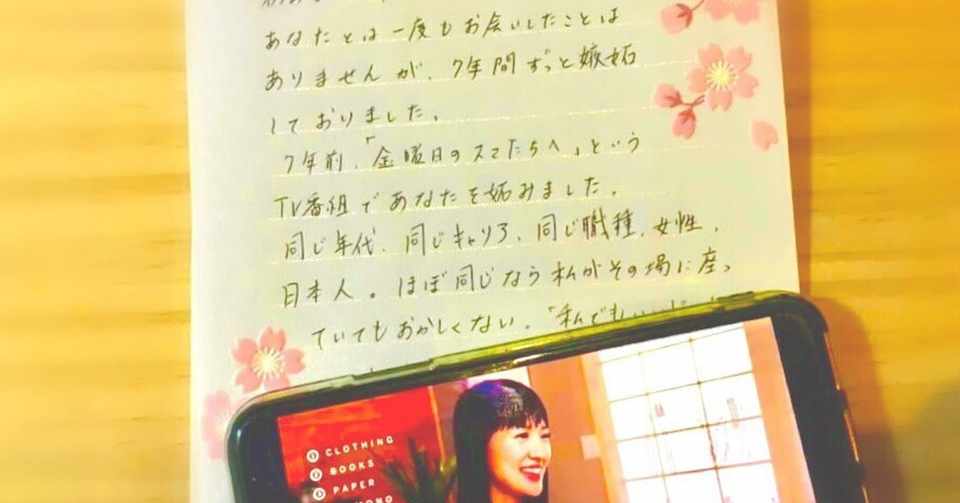 あなたとは一度もお会いしたことは
ありませんが、7年間ずっと嫉妬
しておりました。
7年前、「金曜日のスマたちへ」という
TV番組であなたを妬みました。
同じ年代、同じキャリア、同じ職種、女性、
日本人。ほぼ同じなら私がその場に座っ
ていてもおかしくない。「私でもいい
CLOTHING
BOOKS
PAPER
ONO